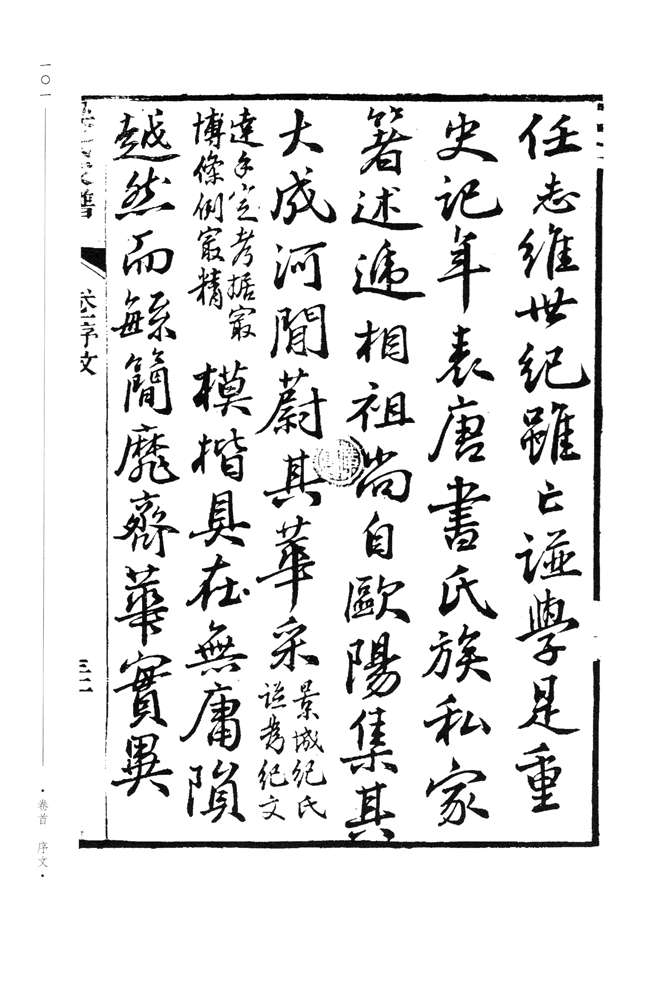 任志維世紀雖亡譜學是重
史記年表唐書氏族私家
著述遞相祖尚自歐陽集其
大成河間蔚其華采景城紀氏
譜為紀文
達手定考据冣
博條例冣精模楷具在無庸隕
越然而緐簡靡齊華實異
卷一序文
三十一
一〇一
·卷首 序文·